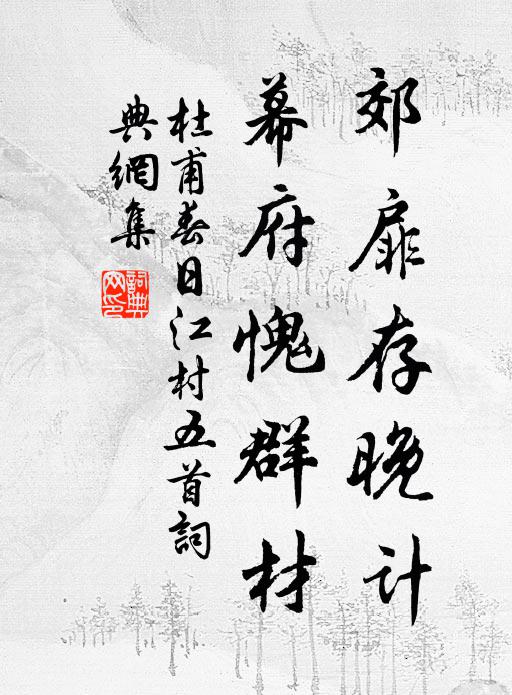 郊扉存晚计
幕府愧群材
杜甫春日江村五首詞
典網集
詞典网印